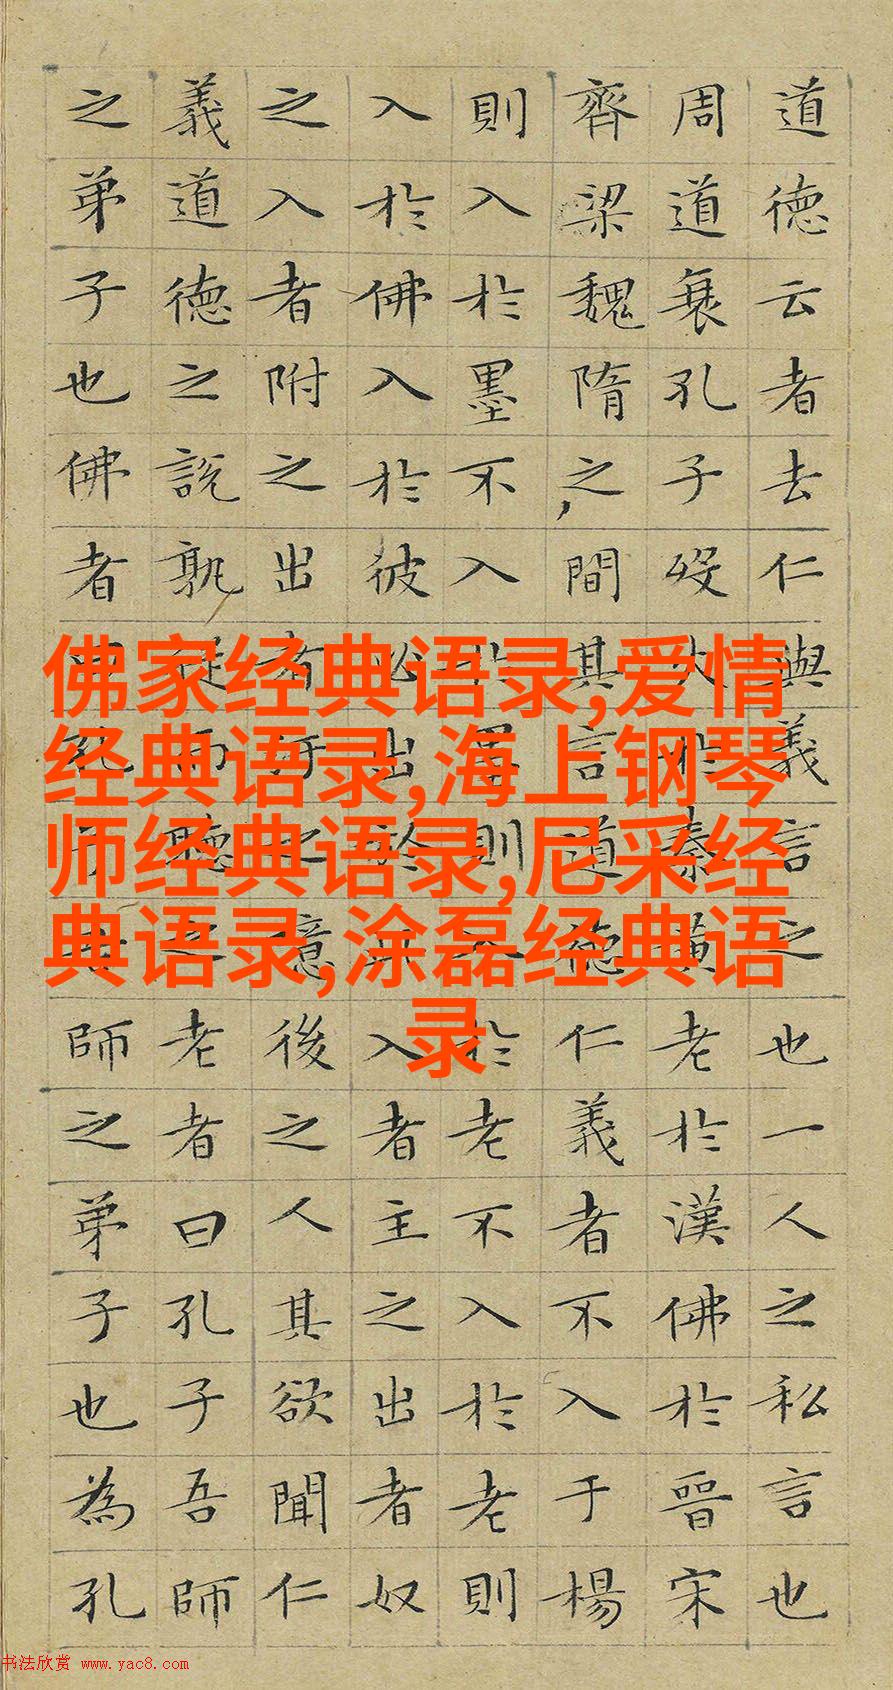 道德云者去仁與義言之也一人之私言也
周道衰孔子歿火於秦黃老於漢佛於晉宋
齊梁魏隋之間其言道德仁義者不入于楊
則入於墨不入於墨則入於老不入於老則
入於佛入於彼必出於此入者主之出者奴
之入者附之出者汙之噫後之人其欲聞仁
義道德之說孰從而聽之老者曰孔子吾師
之弟子也佛者曰孔子吾師之弟子也為孔
佛家经典语录,爱情
经典语录,海上钢琴
师经典语录,尼采经
典语录,涂磊经典语
录
书法欣赏 www.yac8.com